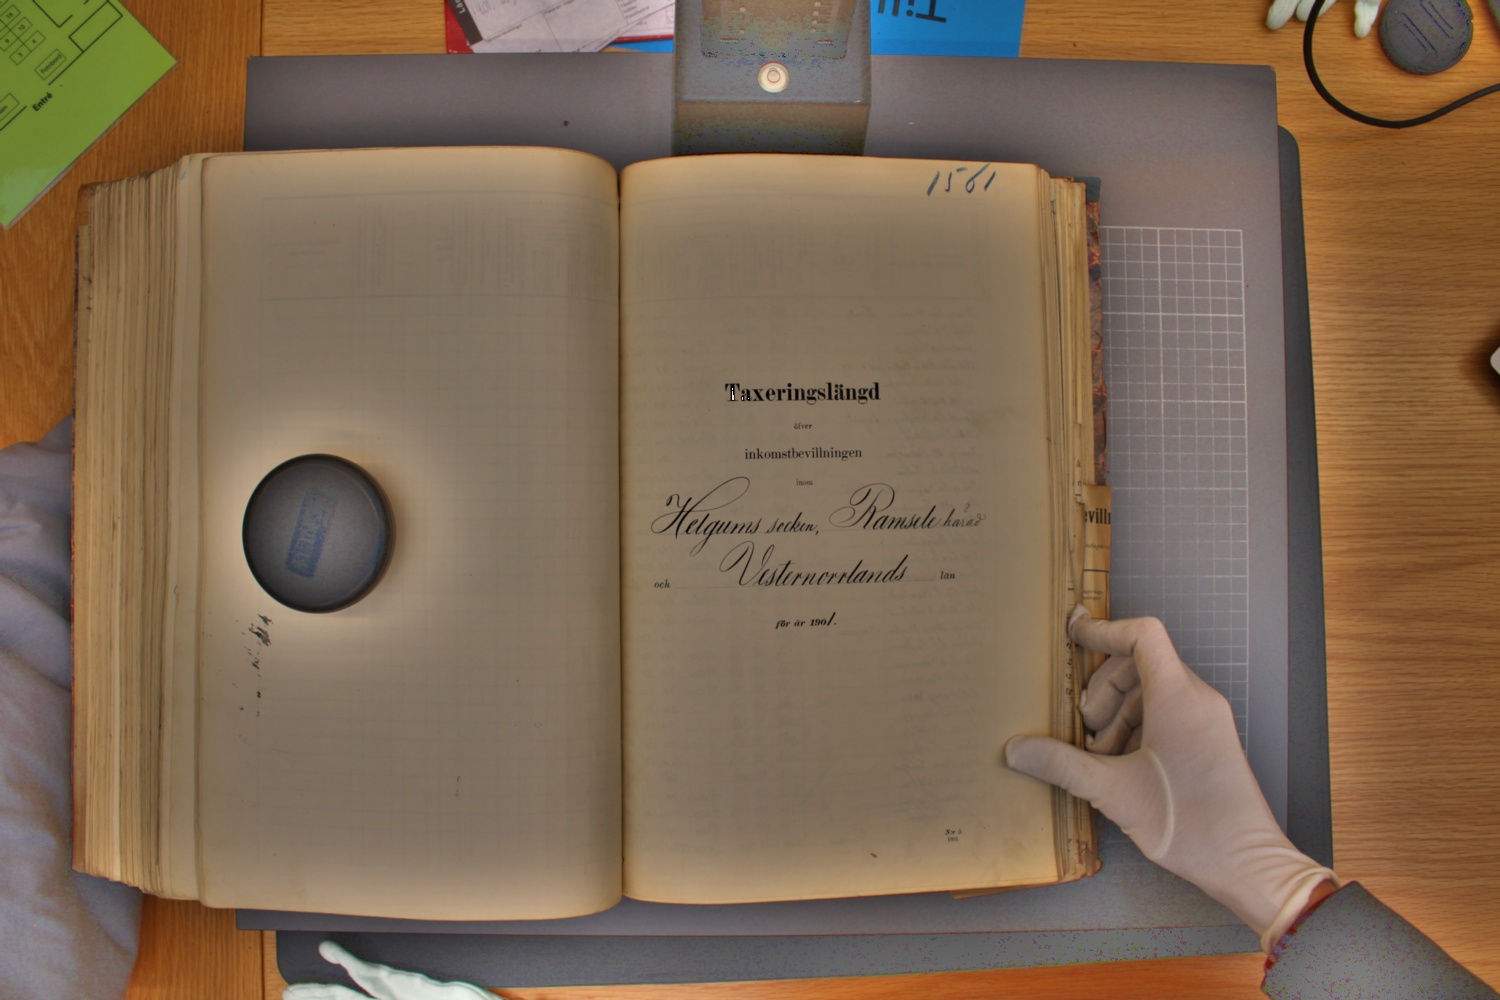 Entré
Till
1561
Taxeringslängd
öfver
inkomstbevillningen
inom
Helgums socken, Ramsele härad
och Vesternorrlands län
för år 1901.
evilln
N:r 5
1901